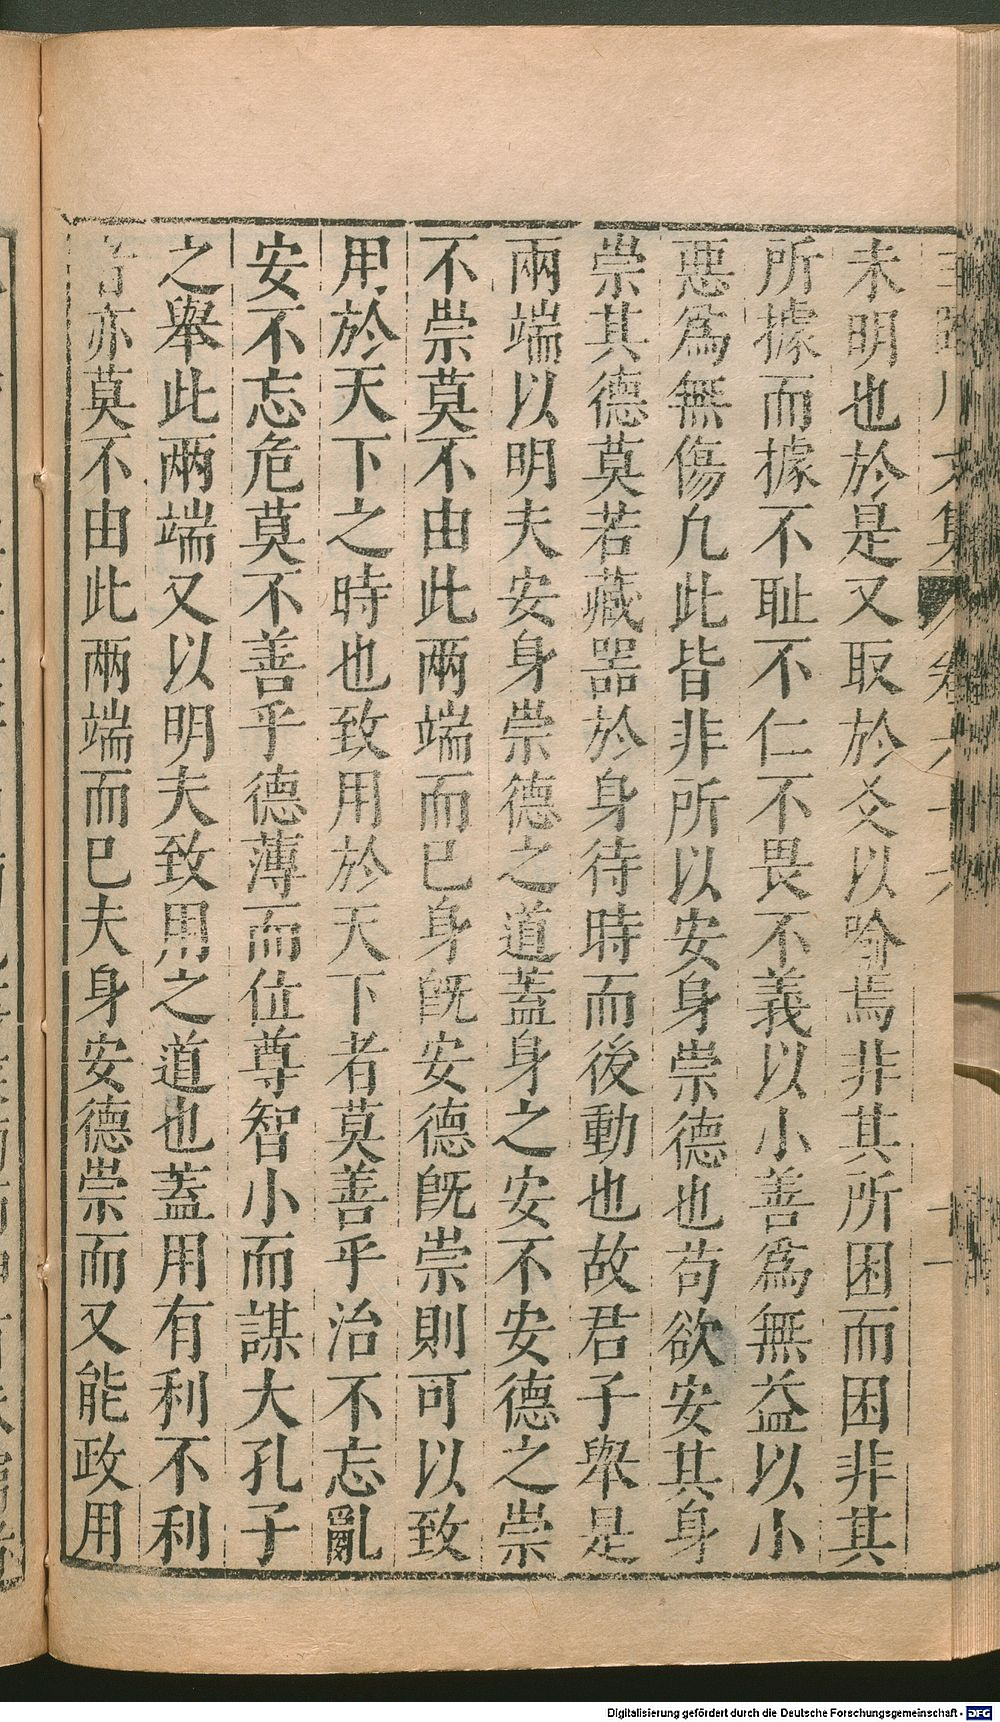 未明也於是又取於爻以喻焉非其所困而困非其
所據而據不耻不仁不畏不義以小善爲無益以小
惡爲無傷凢此皆非所以安身崇德也苟欲安其身
崇其德莫若藏器於身待時而後動也故君子舉是
兩端以明夫安身崇德之道蓋身之安不安德之崇
不崇莫不由此兩端而已身旣安德旣崇則可以致
用於天下之時也致用於天下者莫善乎治不忘亂
安不忘危莫不善乎德薄而位尊智小而謀大孔子
之舉此兩端又以明夫致用之道也蓋用有利不利
者亦莫不由此兩端而已夫身安德崇而又能政用
Digitalisierung gefördert durch die Deutsche Forschungsgemeinschaft - DFG